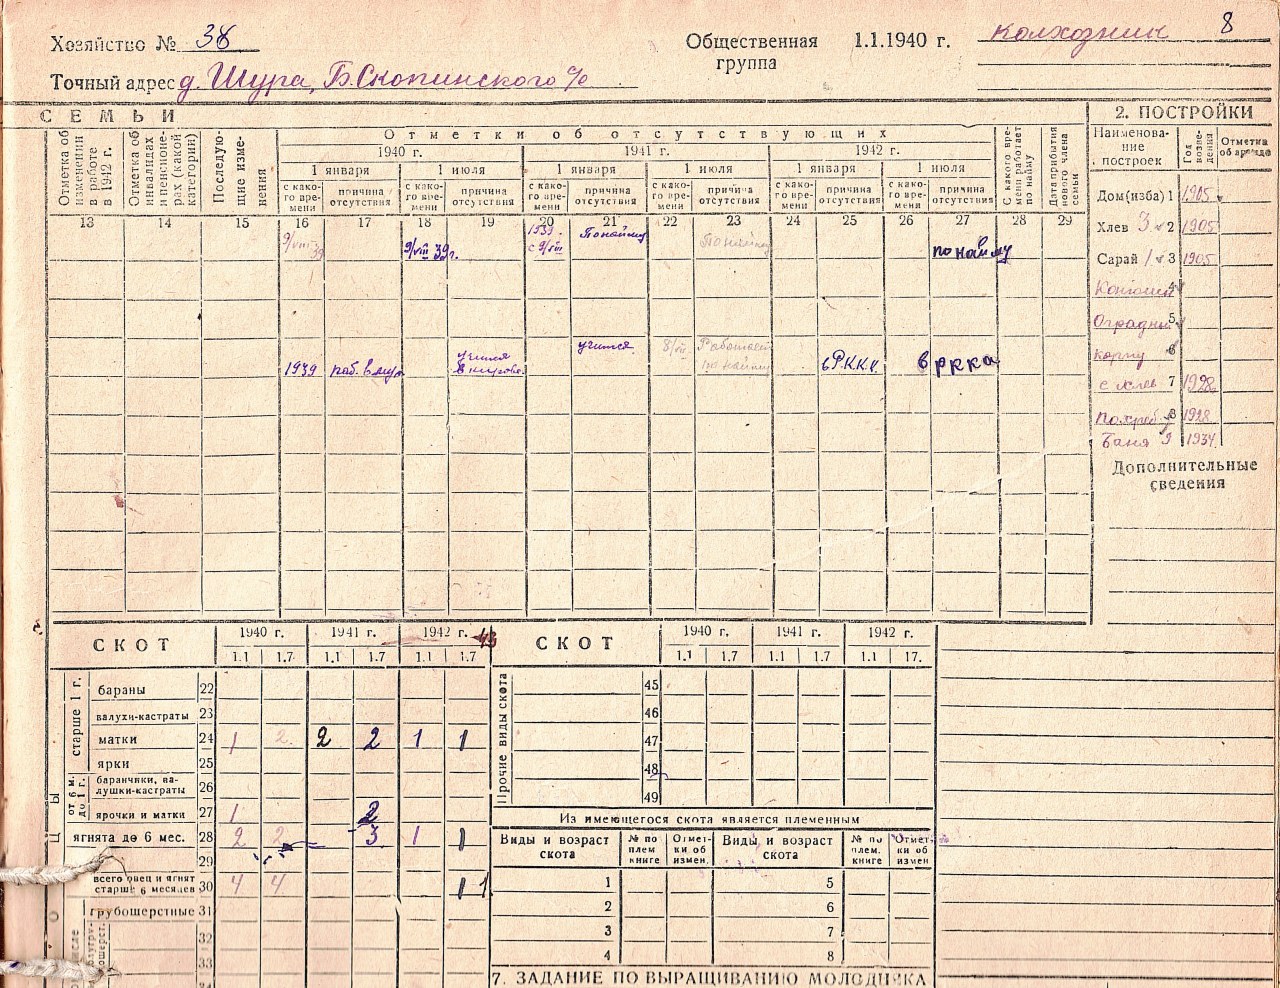 колхозник 8
Хозяйство № 38
Общественная группа 1.1.1940 г.
Точный адрес д. Шура, Б. Скопинского с/с
СЕМЬИ
2. ПОСТРОЙКИ
Отметка об изменении в работе в 1942 г.
Отметка об инвалидах и пенсионерах (какой категории)
Последующие изменения
Отметки об отсутствующих
С какого времени работает по найму
Дата прибытия нового члена семьи
1940 г. 1941 г. 1942 г.
1 января 1 июля 1 января 1 июля 1 января 1 июля
с какого времени причина отсутствия с какого времени причина отсутствия с какого времени причина отсутствия с какого времени причина отсутствия с какого времени причина отсутствия с какого времени причина отсутствия
13 14 15 16 17 18 19 20 21 22 23 24 25 26 27 28 29
9/VIII 39 9/VIII 39г. 1939. с 9/VIII По найму По найму по найму
учится 8/VII Работает по найму
1939 раб. в учится в РККА в РККА
Наименование построек Год возведения Отметка об аренде
Дом (изба) 1 1905
Хлев 3 2 1905
Сарай 1 3 1905
4
5
6
с хлев 7 1928
8 1928
Баня 9 1934
Дополнительные сведения
СКОТ 1940 г. 1941 г. 1942 г. 43
1.1 1.7 1.1 1.7 1.1 1.7
старше 1 г.
бараны 22
валухи-кастраты 23
матки 24 1 2 2 2 1 1
ярки 25
от 6 м. до 1 г.
баранчики, валушки-кастраты 26
ярочки и матки 27 1 2
ягнята до 6 мес. 28 2 2 3 1 1
29
всего овец и ягнят старше 6 месяцев 30 4 4 1 1
грубошерстные 31
32
33
34
СКОТ 1940 г. 1941 г. 1942 г.
1.1 1.7 1.1 1.7 1.1 17.
Прочие виды скота
45
46
47
48
49
Из имеющегося скота является племенным
Виды и возраст скота № по плем книге Отметки об измен. Виды и возраст скота № по плем. книге Отметки об измен
1 5
2 6
3 7
4 8
7. ЗАДАНИЕ ПО ВЫРАЩИВАНИЮ МОЛОДНЯКА